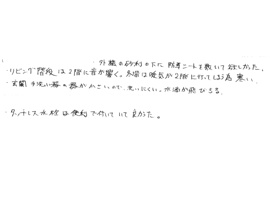 ・外構の砂利の下に防草シートを敷いて欲しかった。
・リビング階段は2階に音が響く。冬場は暖気が2階に行ってしまう為寒い。
・玄関手洗い器の器が小さいので、使いにくい。水滴が飛びちる。
・タッチレス水栓は便利で付いていて良かった。